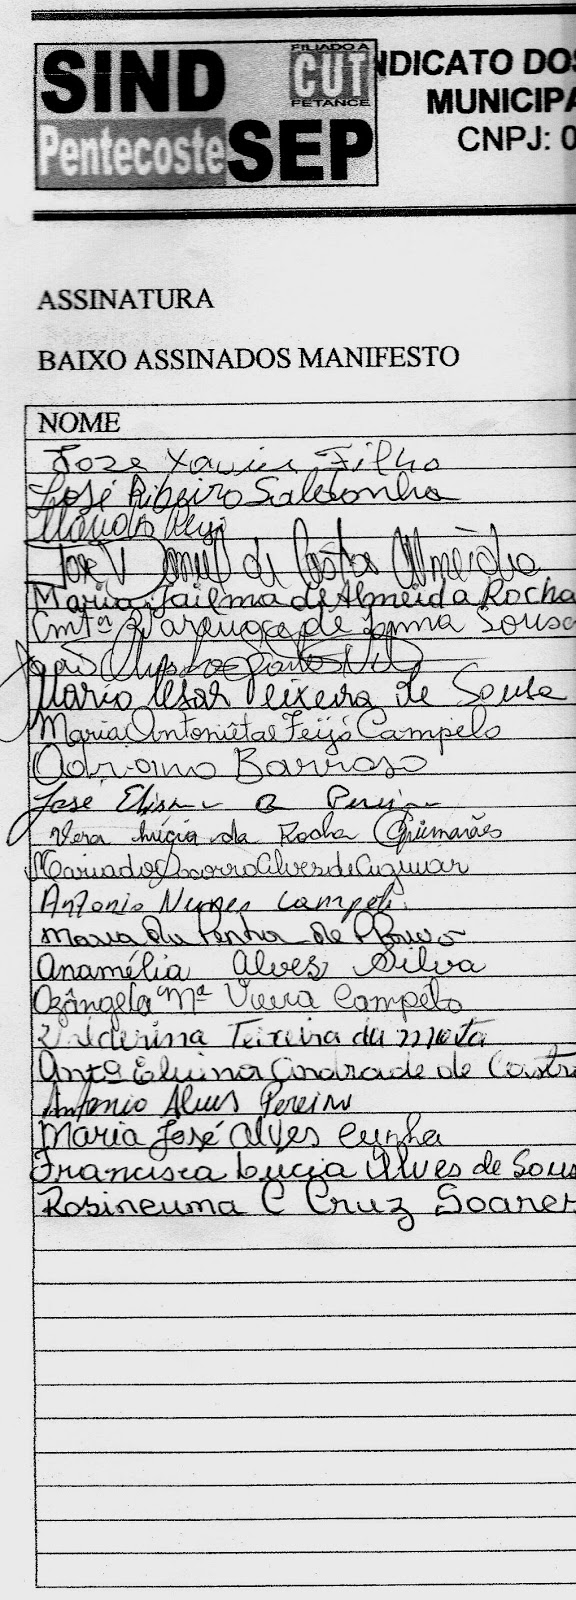 SIND
Pentecoste SEP
FILIADO A
CUT
FETAMCE
NDICATO DOS
MUNICIPA
CNPJ: 0
ASSINATURA
BAIXO ASSINADOS MANIFESTO
NOME
Joze Xavier Filho
José Ribeiro Saldanha
José Daniel da Costa Almeida
Maria Jailma de Almeida Rocha
de Lima Sousa
João
Mario Cesar Teixeira de Sousa
Maria Antoniêta Feijó Campelo
Adriano Barroso
José Pereira
Vera Lúcia da Rocha Guimarães
Maria do Socorro Alves de Aguiar
Antonio Nunes Campelo
Maria da Penha de
Anamélia Alves Silva
Ozângela Mª Vieira Campelo
Valderina Teixeira da Mota
Antª Andrade de Castr
Antonio Alves Pereira
Maria José Alves Cunha
Francisca Lucia Alves de Sous
Rosineuma C Cruz Soares